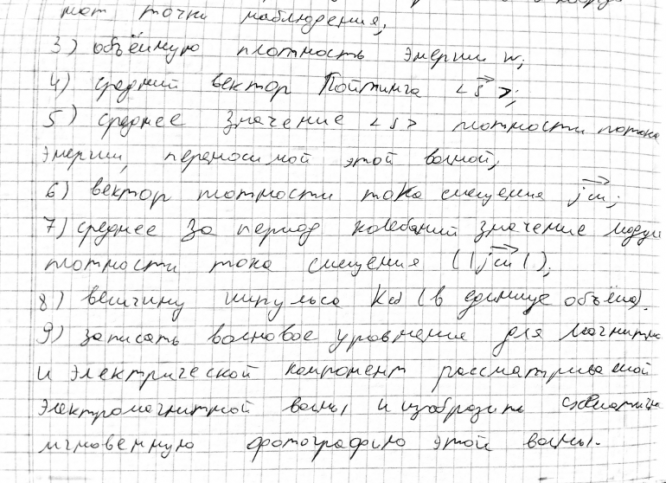 нат точки наблюдения;
3) объёмную плотность энергии w;
4) средний вектор Пойтинга <S>;
5) среднее значение <S> плотности потока
энергии, переносимой этой волной;
6) вектор плотности тока смещения jсм;
7) среднее за период колебаний значение модуля
плотности тока смещения (|jсм|);
8) величину импульса Kед (в единице объёма).
9) записать волновое уравнение для магнитн
и электрической компонент рассматриваемой
электромагнитной волны и изобразить схематичн
мгновенную фотографию этой волны.